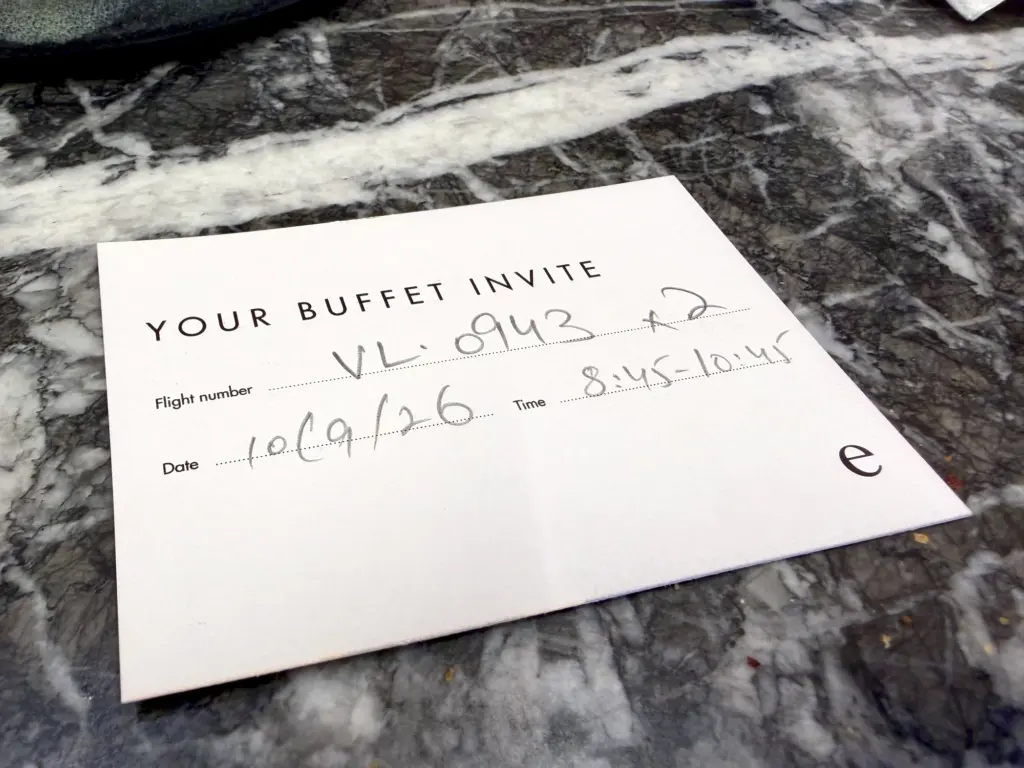 YOUR BUFFET INVITE
Flight number VL. 0943 x2
Date 10/9/26 Time 8:45-10:45
e